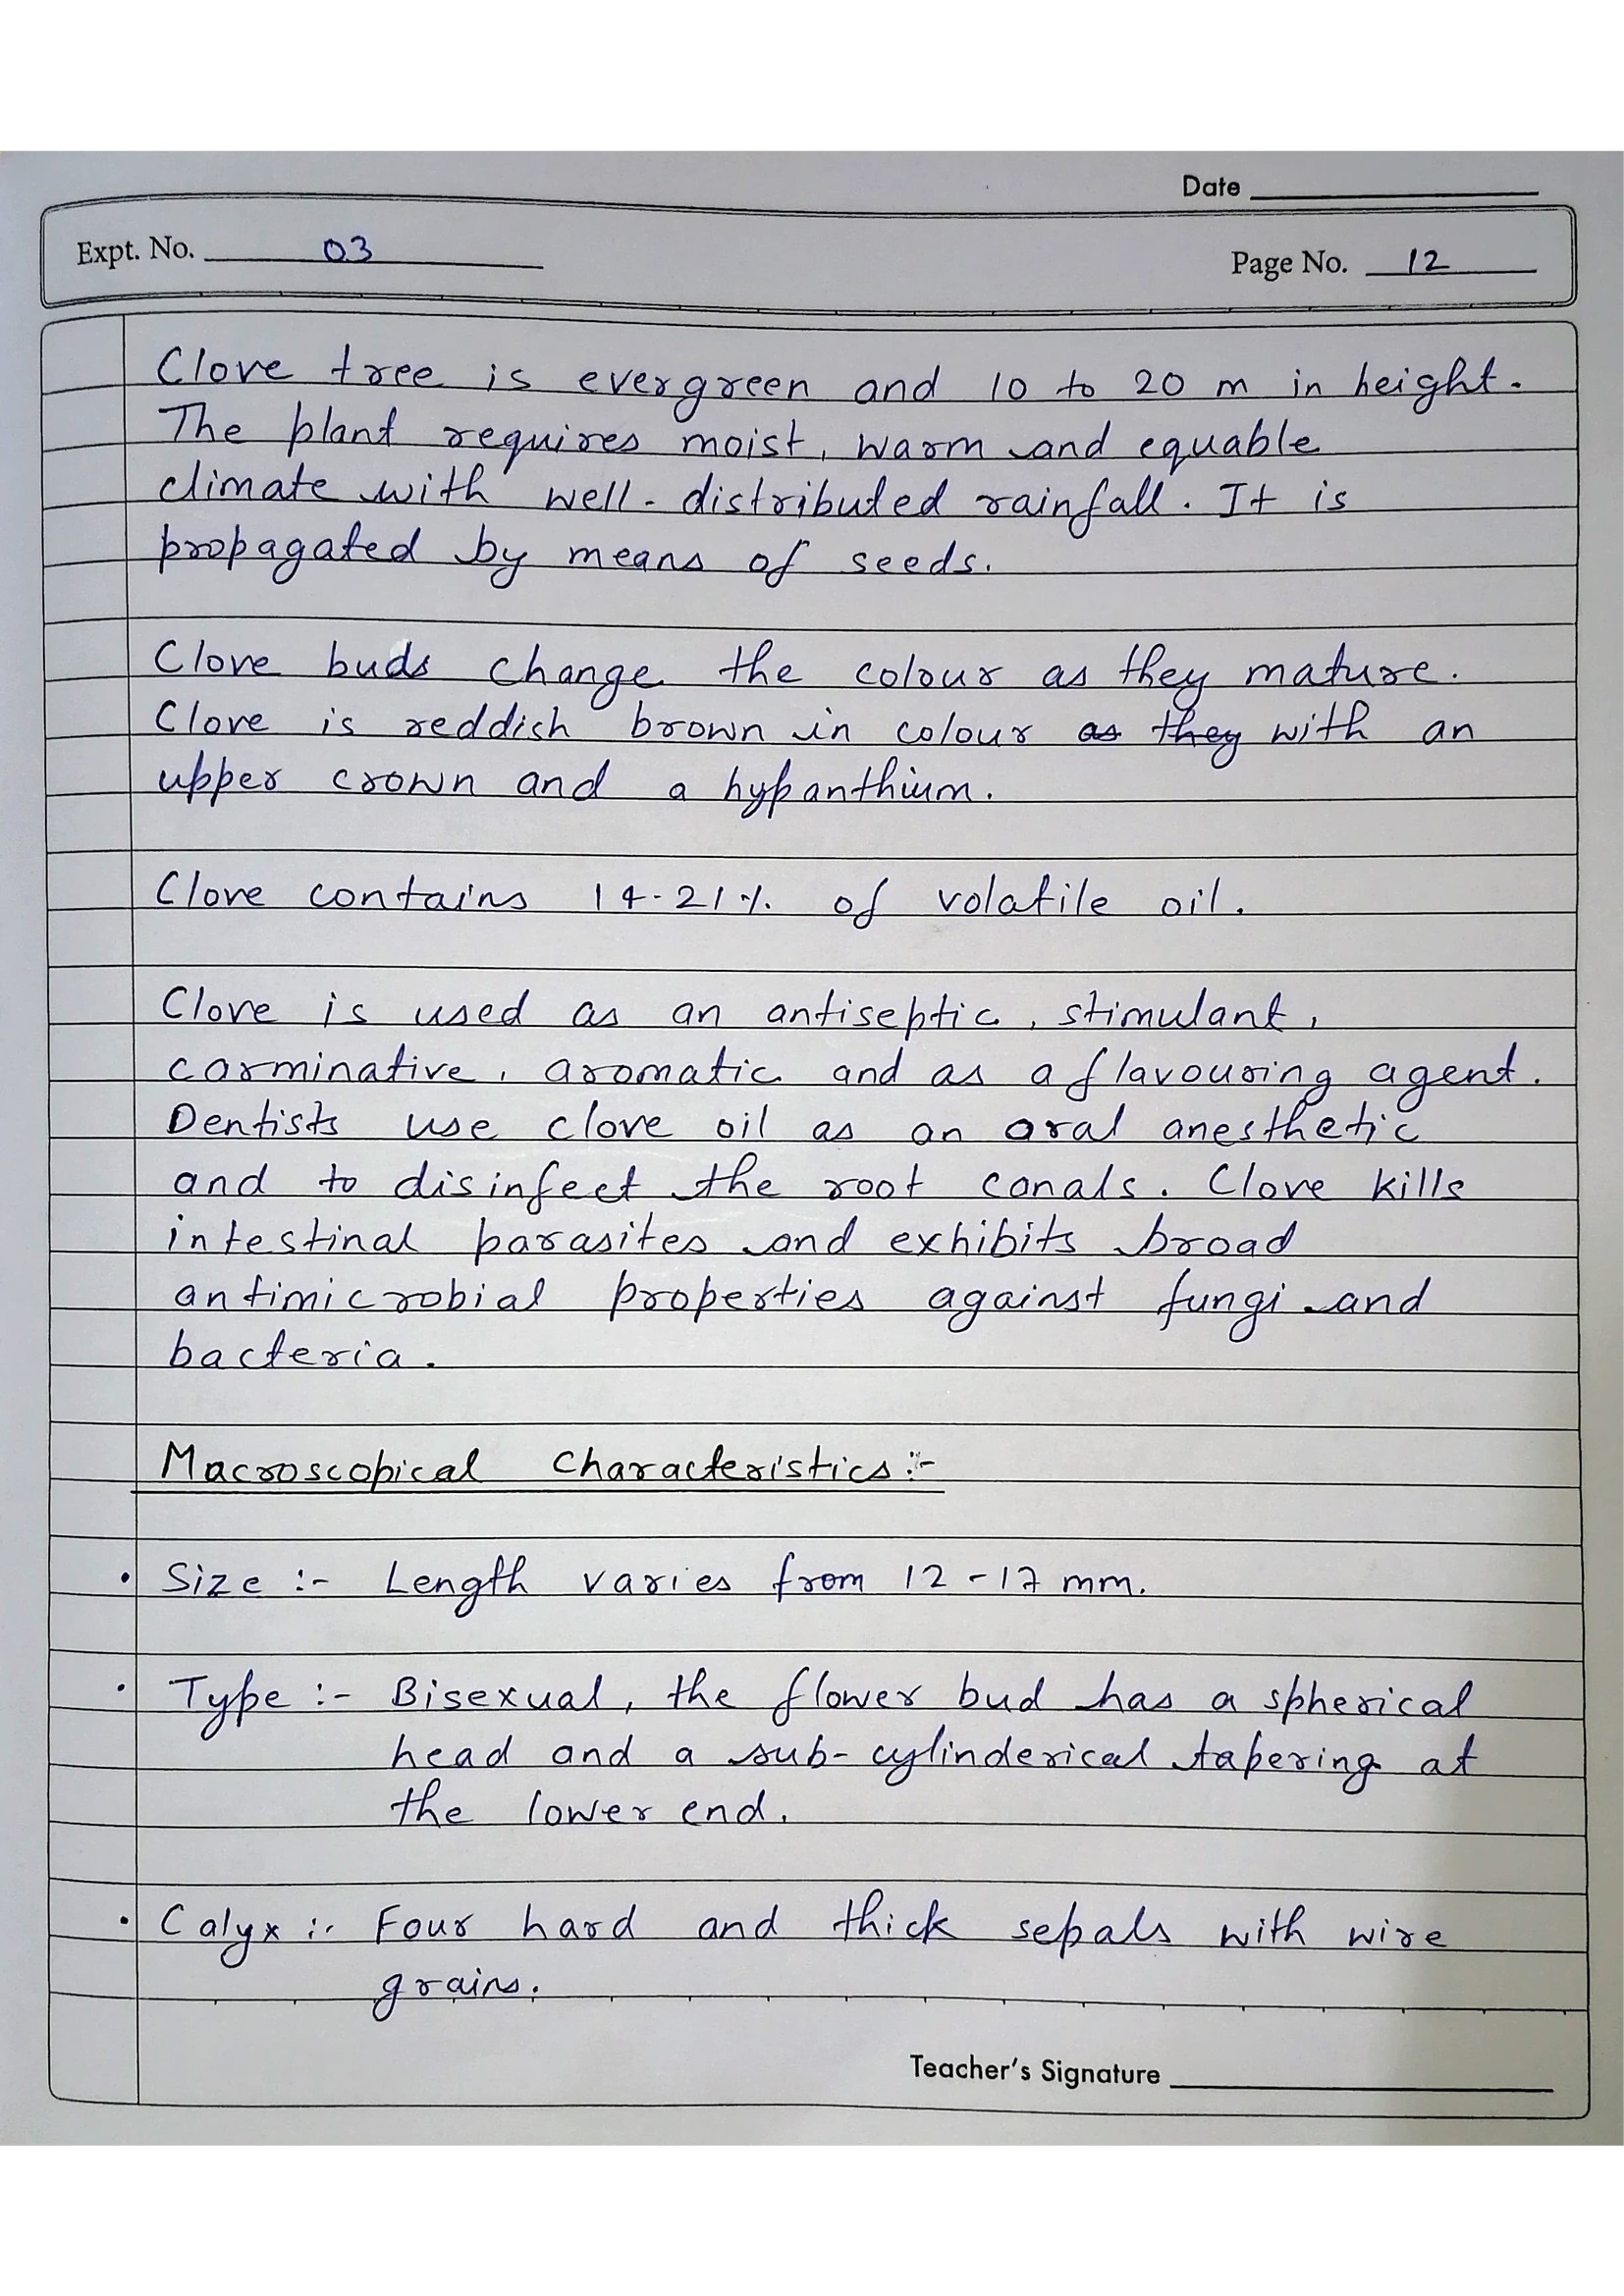 Date
Expt. No. 03
Page No. 12
Clove tree is evergreen and 10 to 20 m in height.
The plant requires moist, warm and equable
climate with well-distributed rainfall. It is
propagated by means of seeds.
Clove buds change the colour as they mature.
Clove is reddish brown in colour as they with an
upper crown and a hypanthium.
Clove contains 14-21% of volatile oil.
Clove is used as an antiseptic, stimulant,
carminative, aromatic and as a flavouring agent.
Dentists use clove oil as an oral anesthetic
and to disinfect the root canals. Clove kills
intestinal parasites and exhibits broad
antimicrobial properties against fungi and
bacteria.
Macroscopical Characteristics:-
• Size :- Length varies from 12-17 mm.
• Type :- Bisexual, the flower bud has a spherical
head and a sub-cylinderical tapering at
the lower end.
• Calyx :- Four hard and thick sepals with wire
grains.
Teacher's Signature